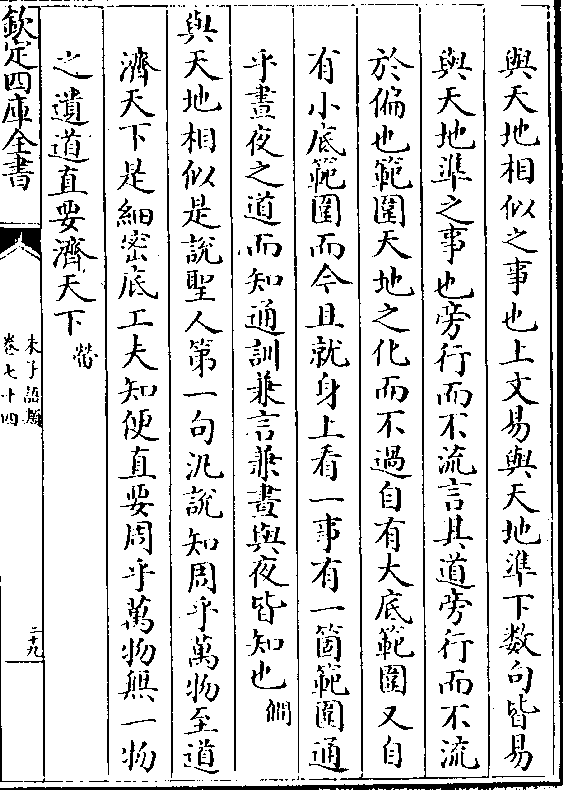 與天地相似之事也上文易與天地準下数句皆易
與天地準之事也旁行而不流言其道旁行而不流
於偏也範圍天地之化而不過自有大底範圍又自
有小底範圍而今且就身上看一事有一箇範圍通
乎晝夜之道而知通訓兼言兼晝與夜皆知也 㒒
與天地相似是說聖人第一句汎說知周乎萬物至道
濟天下是細密底工夫知便直要周乎萬物無一物
之遺道直要濟天下 㽦
欽定四庫全書
朱子語類
卷七十四
二十九